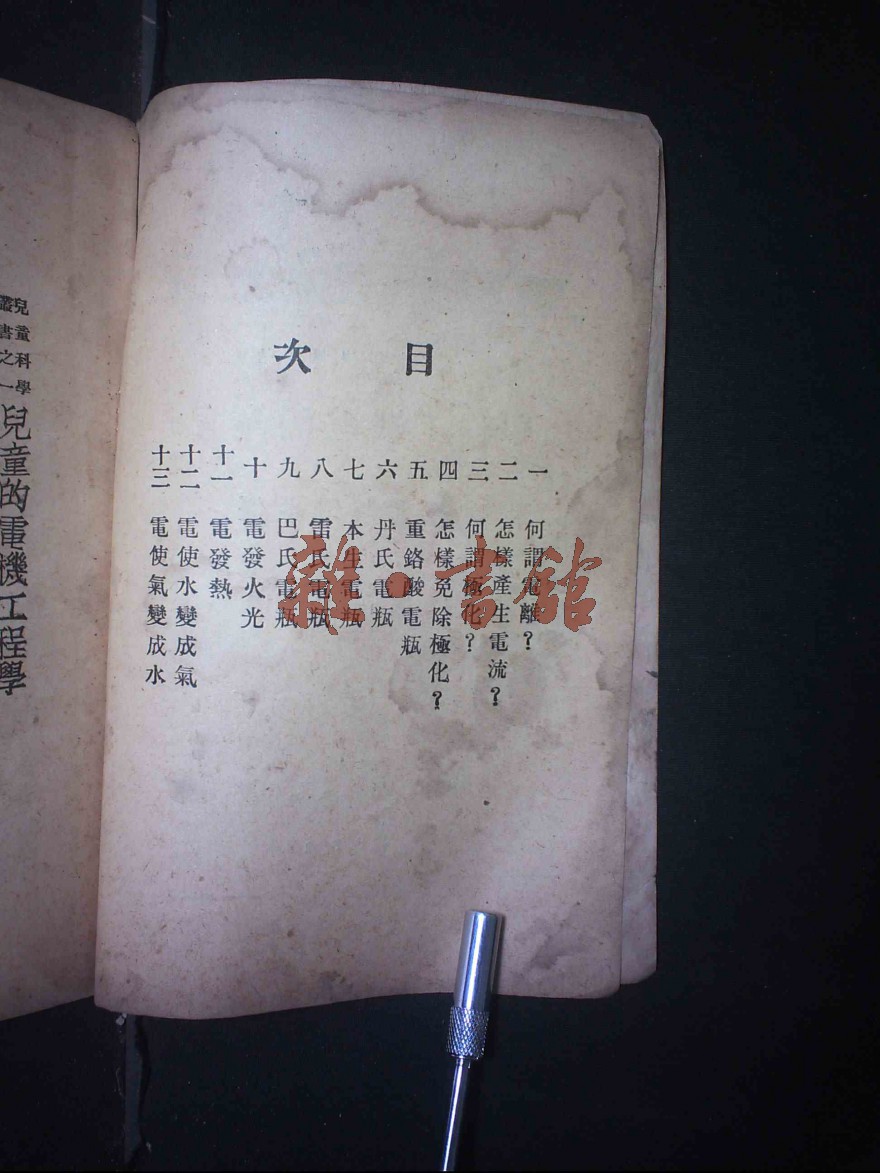 目次
一 何謂電離？
二 怎樣產生電流？
三 何謂極化？
四 怎樣免除極化？
五 重鉻酸電瓶
六 丹氏電瓶
七 本生電瓶
八 雷氏電瓶
九 巴氏電瓶
十 電發火光
十一 電發熱
十二 電使水變成氣
十三 電使氣變成水
兒童科學
叢書之一
兒童的電機工程學
雜·書館